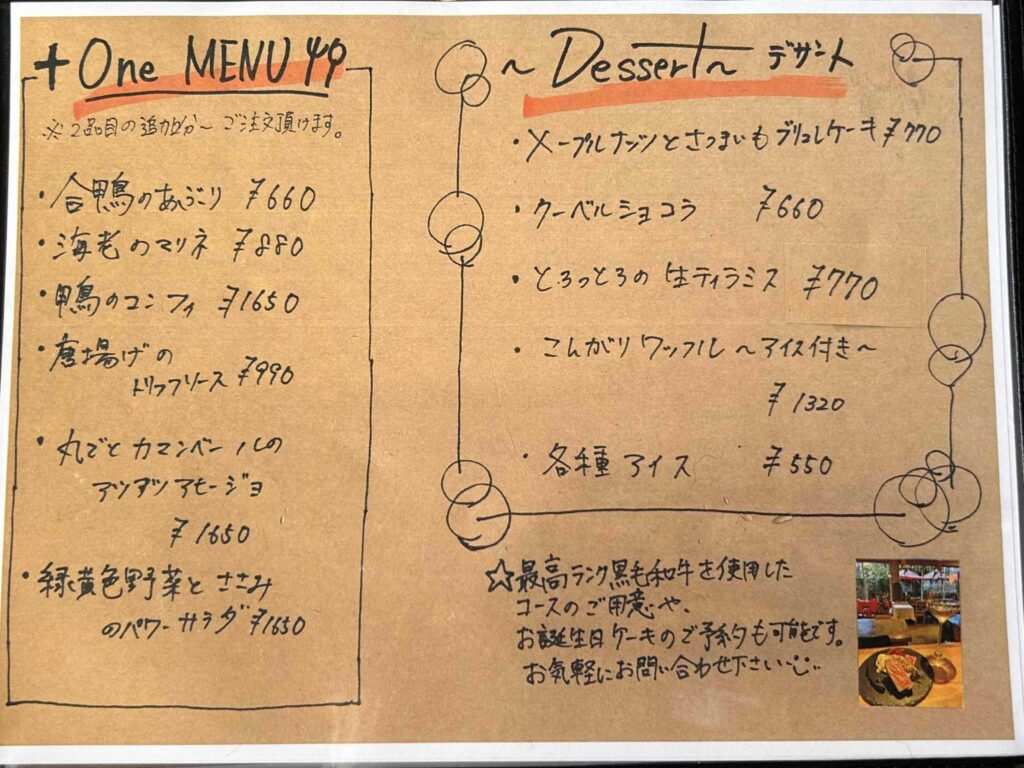 +One MENU
※2品目の追加分〜ご注文頂けます。
・合鴨のあぶり ¥660
・海老のマリネ ¥880
・鴨のコンフィ ¥1650
・唐揚げの
トリフソース ¥990
・丸ごとカマンベールの
アツアツアヒージョ
¥1650
・緑黄色野菜とささみ
のパワーサラダ ¥1650
〜Dessert〜 デザート
・メープルナッツとさつまいもブリュレケーキ ¥770
・クーベルショコラ ¥660
・とろっとろの生ティラミス ¥770
・こんがりワッフル〜アイス付き〜
¥1320
・各種アイス ¥550
☆最高ランク黒毛和牛を使用した
コースのご用意や、
お誕生日ケーキのご予約も可能です。
お気軽にお問い合わせ下さい